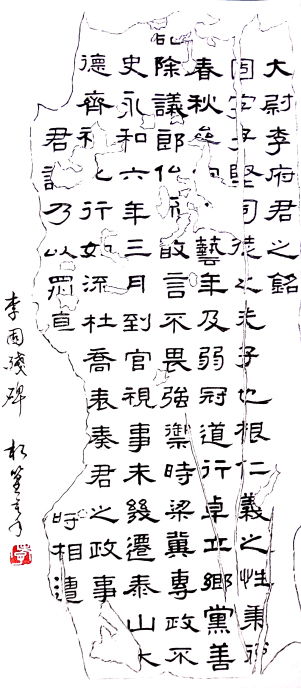 大尉李府君之銘
固字子堅司徒之夫子也根仁義之性秉
春秋藝年及弱冠道行卓立鄉黨善
除議郎敢言不畏強禦時梁冀專政不
史永和六年三月到官視事未幾遷泰山大
德齊行如流杜喬表奏君之政事
君乃以罔直時相遭
李固殘碑